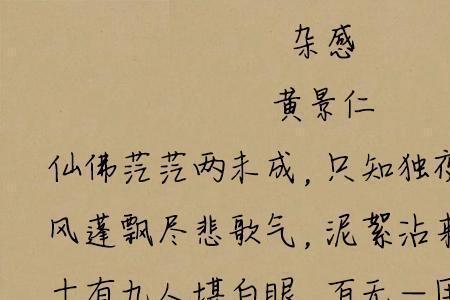 杂感
黄景仁
仙佛茫茫两未成，只知独夜
风蓬飘尽悲歌气，泥絮沾来
十有九人堪白眼，百无一用